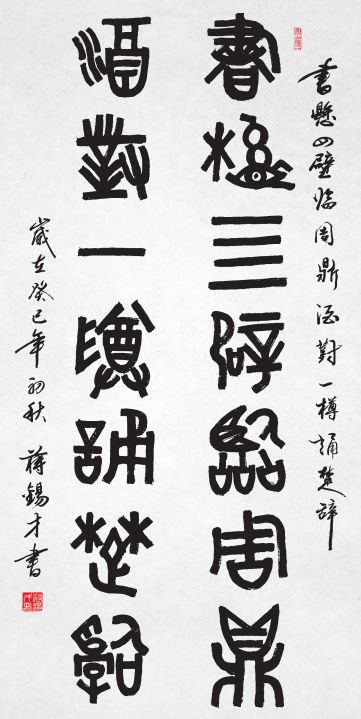 書懸四壁臨周鼎酒對一樽誦楚辭
書懸四壁臨周鼎
酒對一樽誦楚辭
歲在癸巳年初秋 蔣錫才書